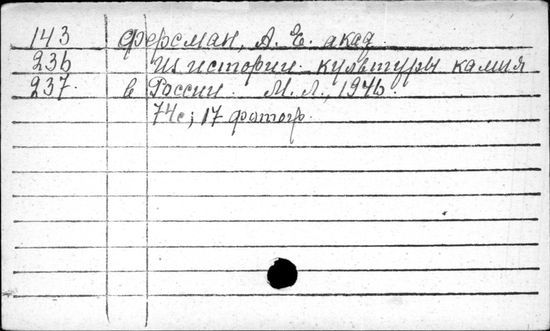 143 Ферсман, А. Е. акад.
236 Из истории культуры камня
237. в России. М. Л., 1946.
74с; 17 фотогр.